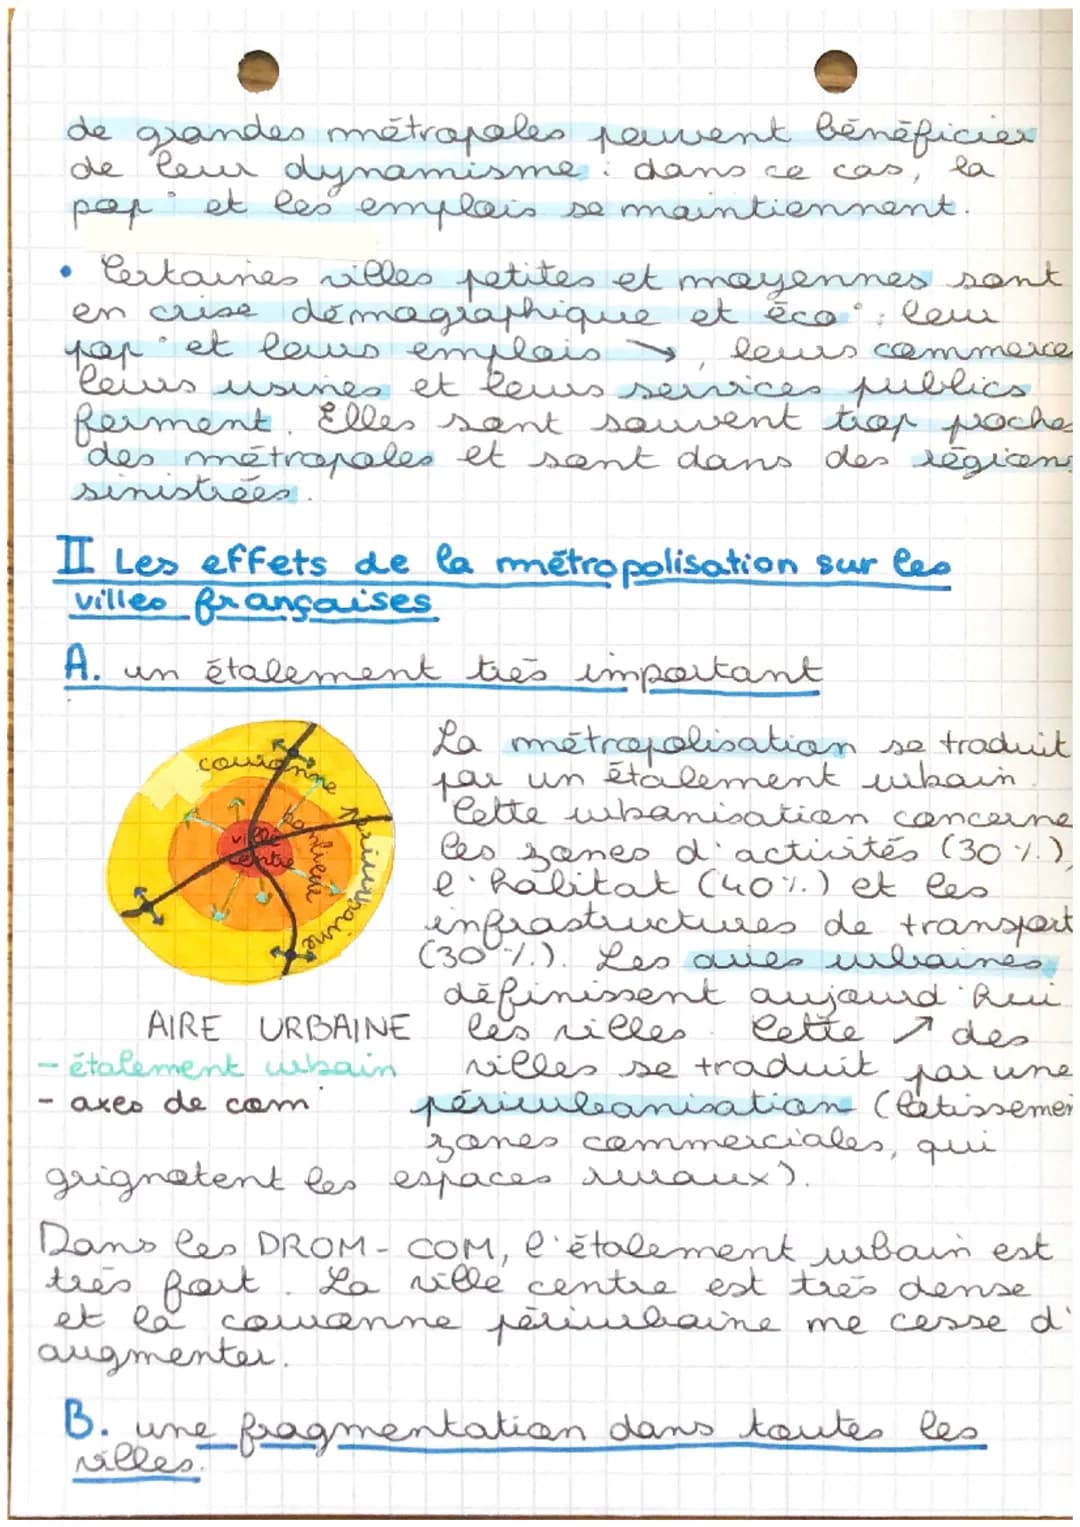 de grandes métropoles peuvent bénéficier
de leur dynamisme : dans ce cas, la
pop° et les emplois se maintiennent.
• Certaines villes petites et moyennes sont
en crise démographique et éco° : leur
pop° et leurs emplois ↘, leurs commerce
leurs usines et leurs services publics
ferment. Elles sont souvent trop poches
des métropoles et sont dans des régions
sinistrées.
II Les effets de la métropolisation sur les
villes françaises
A. un étalement très important
couronne périurbaine
banlieue
ville
centre
AIRE URBAINE
- étalement urbain
- axes de com°
La métropolisation se traduit
par un étalement urbain.
Cette urbanisation concerne
les zones d'activités (30%),
l'habitat (40%) et les
infrastructures de transport
(30%). Les aires urbaines
définissent aujourd'hui
les villes. Cette ↗ des
villes se traduit par une
périurbanisation (lotissemen
zones commerciales, qui
grignotent les espaces ruraux).
Dans les DROM-COM, l'étalement urbain est
très fort. La ville centre est très dense
et la couronne périurbaine me cesse d'
augmenter.
B. une fragmentation dans toutes les
villes.